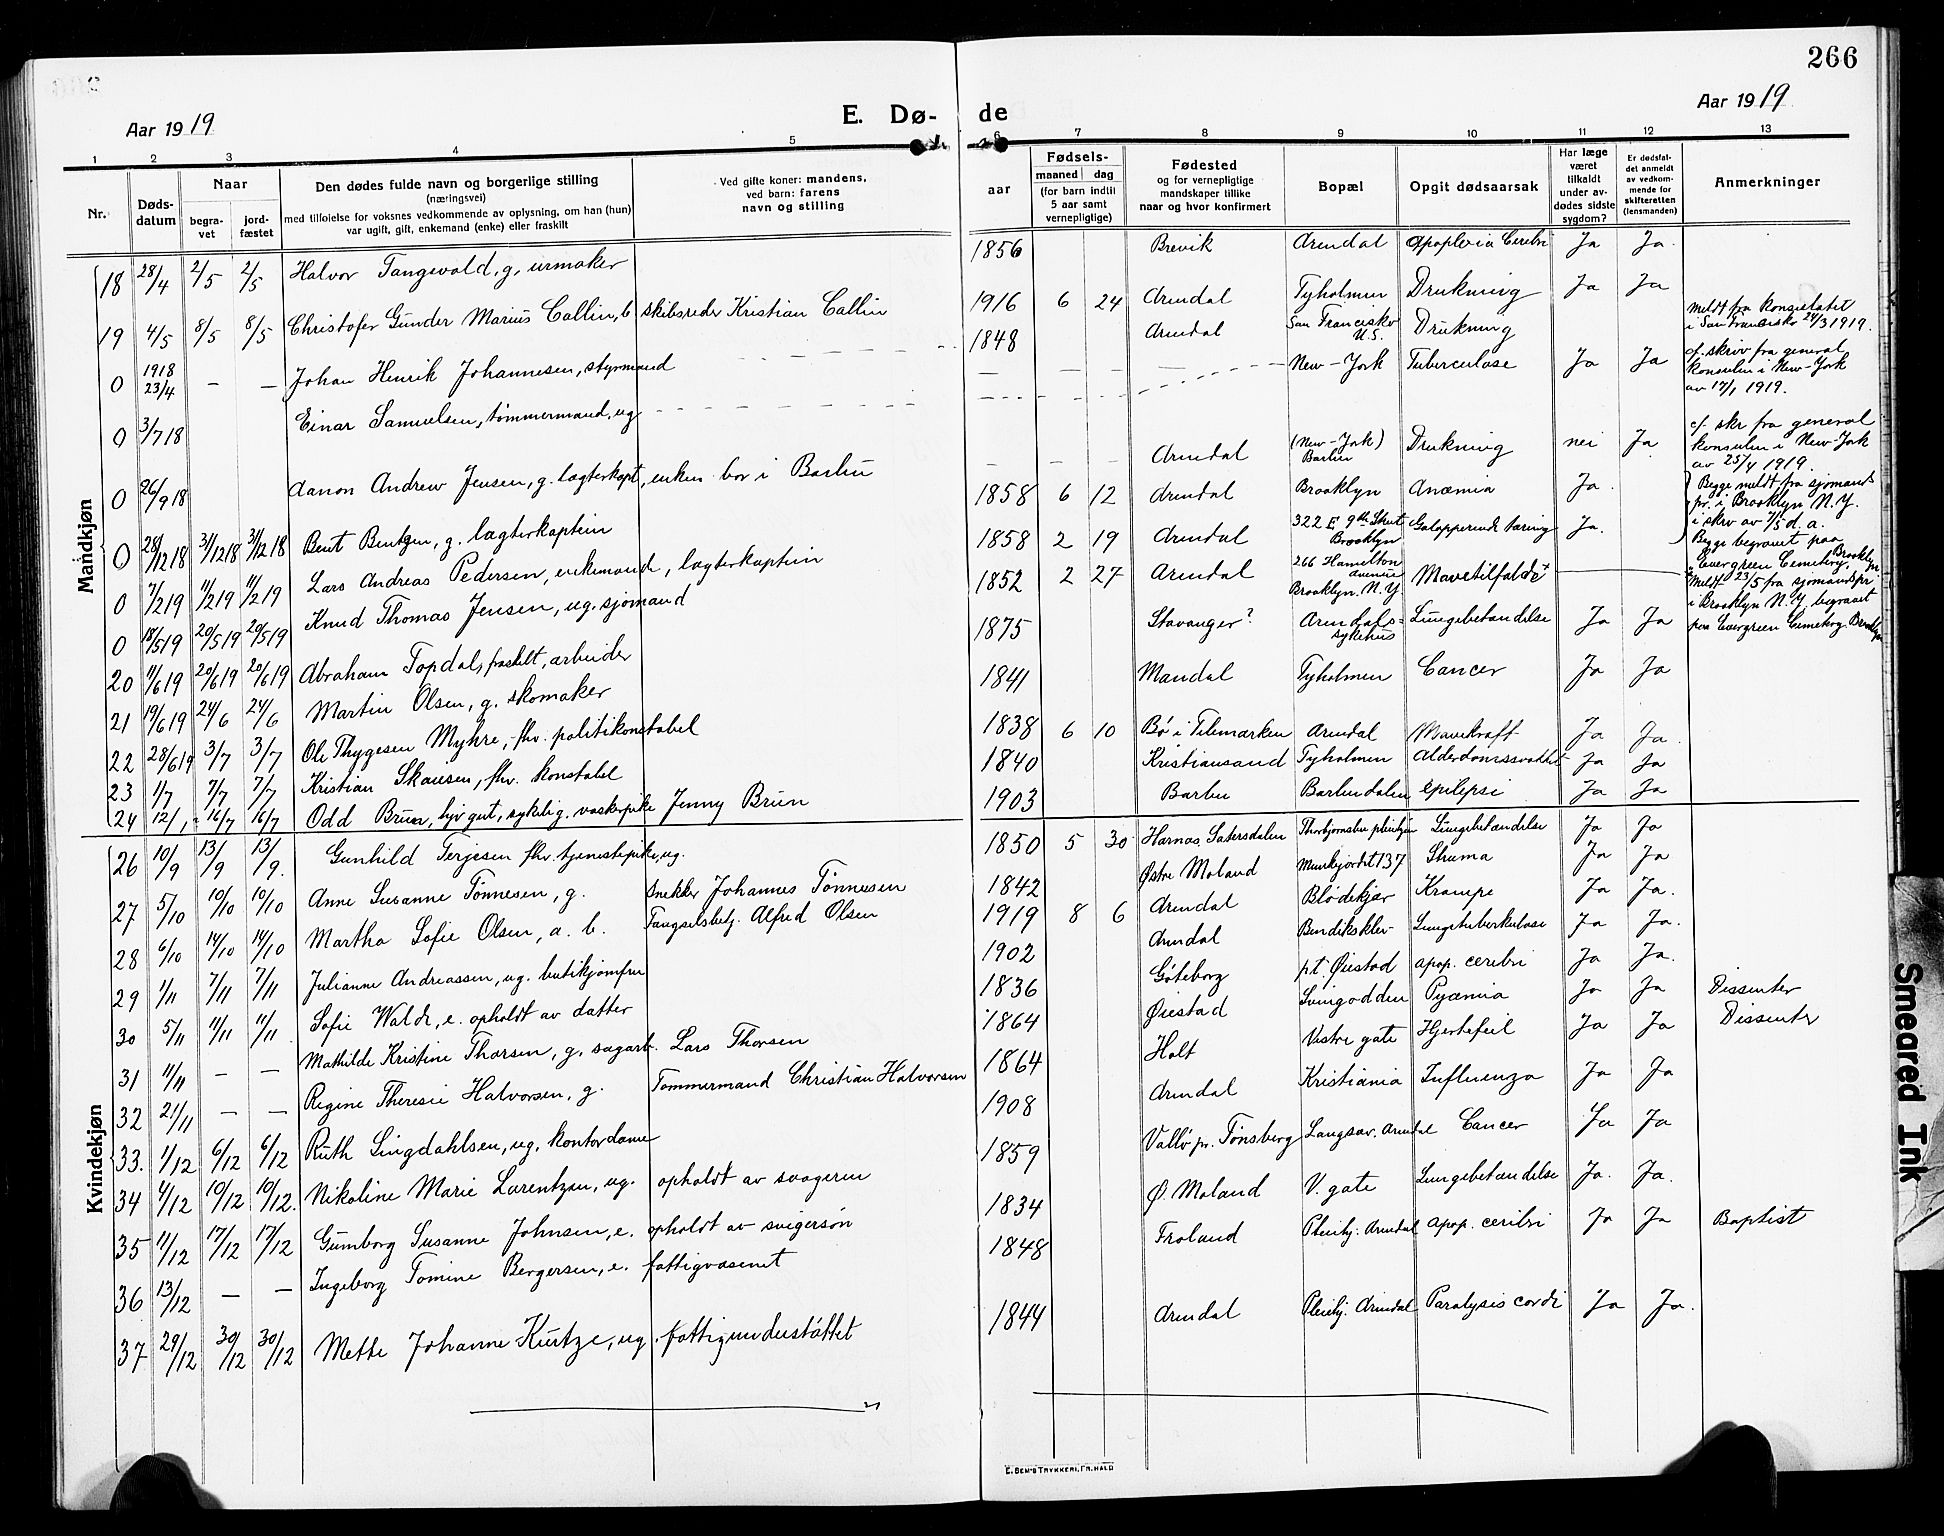 266
Aar 1919
E. Dø- de
Aar 1919
1 2 3 4 5 6 7 8 9 10 11 12 13
Nr.
Døds-
datum
Naar
begra-
vet
jord-
fæstet
Den dødes fulde navn og borgerlige stilling
(næringsvei)
med tilføielse for voksnes vedkommende av oplysning, om han (hun)
var ugift, gift, enkemand (enke) eller fraskilt
Ved gifte koner: mandens,
ved barn: farens
navn og stilling
aar
Fødsels-
maaned dag
(for barn indtil
5 aar samt
vernepligtige)
Fødested
og for vernepligtige
mandskaper tillike
naar og hvor konfirmert
Bopæl
Opgit dødsaarsak
Har læge
været
tilkaldt
under av-
dødes sidste
sygdom?
Er dødsfal-
det anmeldt
av vedkom-
mende for
skifteretten
(lensmanden)
Anmerkninger
Mandkjøn
18 28/4 2/5 2/5 Halvor Tangevald, g, urmaker 1856 Brevik Arendal Apoplexia Cerebri Ja Ja.
19 4/5 8/5 8/5 Christofer Gunder Marius Callin, b skibsreder Kristian Callin 1916 6 24 Arendal Tyholmen Drukning Ja Ja
0 1918 23/4 — — Johan Henrik Johannesen, styrmand 1848 Arendal San Francisko U.S. Drukning Meldt fra konsulatet
i San Francisko 24/3 1919.
0 3/7 18 Einar Samuelsen, tømmermand, ug — — — New-York Tuberculose Ja Ja cf. skriv fra general
konsulen i New-York
av 17/1 1919.
0 26/9 18 Aanon Andrew Jensen, g. lægterkapt, enken bor i Barbu — — Arendal (New-York) Barbu Drukning nei Ja cf. skr fra general
konsulen i New-York
av 25/4 1919.
0 28/12 18 31/12 18 31/12 18 Bent Bentzen, g. lægterkaptein 1858 6 12 Arendal Brooklyn Anæmia Ja. Begge meldt fra sjømands
pr. i Brooklyn N.Y.
i skrv av 7/5 d.a.
0 7/2 19 11/2 19 11/2 19 Lars Andreas Pedersen, enkemand, lægterkaptein 1858 2 19 Arendal 322 E 9th Street Brooklyn Galopperende tæring Ja. Begge begravet paa
Evergreen Cemetery, Brooklyn
0 18/5 19 20/5 19 20/5 19 Knud Thomas Jensen, ug. sjømand 1852 2 27 Arendal 266 Hamilton Avenue Brooklyn N.Y Mavetilfælde — — Meldt 23/5 fra sjømandspr
i Brooklyn N.Y, begravet
paa Evergreen Cemetery. Brooklyn
20 11/6 19 20/6 19 20/6 19 Abraham Topdal, fraskilt, arbeider 1875 Stavanger? Arendals sykehus Lungebetændelse Ja Ja
21 19/6 19 24/6 24/6 Martin Olsen, g. skomaker 1841 Mandal Tyholmen Cancer Ja Ja
22 28/6 19 3/7 3/7 Ole Thygesen Myhre, fhv. politikonstabel 1838 6 10 Bø i Telemarken Arendal Mavekræft Ja Ja.
23 1/7 7/7 7/7 Kristian Skausen, fhv. konstabel 1840 Kristiansand Tyholmen Alderdomssvakhet Ja Ja
24 12/ 16/7 16/7 Odd Brun, syklig. vaskepike Jenny Brun 1903 Barbu Barbudalen epilepsi Ja Ja
Kvindekjøn
26 10/9 13/9 13/9. Gunhild Terjesen fhv. tjenestepike, ug. 1850 5 30 Sætersdalen Lungebetændelse Ja Ja
27 5/10 10/10 10/10 Anne Susanne Tønnesen, g. Snekker Johannes Tønnesen 1842 Østre Moland Munkejordet 137 Struma Ja Ja
28 6/10 14/10 14/10 Martha Sofie Olsen, a. b. Fængselsbetj. Alfred Olsen 1919 8 6 Arendal Blødekjær Krampe Ja Ja.
29 1/11 7/11 7/11 Julianne Andreassen, ug. butikjomfru 1902 Arendal Bendiksklev Lungetuberkulose Ja Ja.
30 5/11 11/11 11/11 Sofie Walde, e. opholdt av datter 1836 Gøteborg p.t. Øiestad apop. cerebri Ja Ja.
31 11/11 — — Mathilde Kristine Thorsen, g. sagarb. Lars Thorsen 1864 Øiestad Svingodden Pyæmia Ja Ja Dissenter
32 21/11 — — Regine Theresie Halvorsen, g. Tømmermand Christian Halvorsen 1864 Holt Vestre gate Hjertefeil Ja Ja Dissenter
33. 1/12 6/12 6/12 Ruth Lingdahlsen, ug. kontordame 1908 Arendal Kristiania Influenza Ja Ja
34 4/12 10/12 10/12. Nikoline Marie Lorentzen, ug. opholdt av svogeren 1859 Vallø pr. Tønsberg Langsæv. Arendal Cancer Ja Ja
35 11/12 17/12 17/12 Gunborg Susanne Johnsen, e. opholdt av svigersøn 1834 Ø. Moland V. gate Lungebetændelse Ja. Ja.
36 13/12 — — Ingeborg Tomine Bergersen, e. fattigvæsenet 1848 Froland Pleiehj. Arendal apop. cerebri Ja Ja Baptist
37 29/12 30/12 30/12 Mette Johanne Kurtze, ug. fattigunderstøttet 1844 Arendal Pleiehj. Arendal Paralysis cordi Ja Ja.
E. BEN'S TRYKKERI, FR. HALD
Smeared Ink